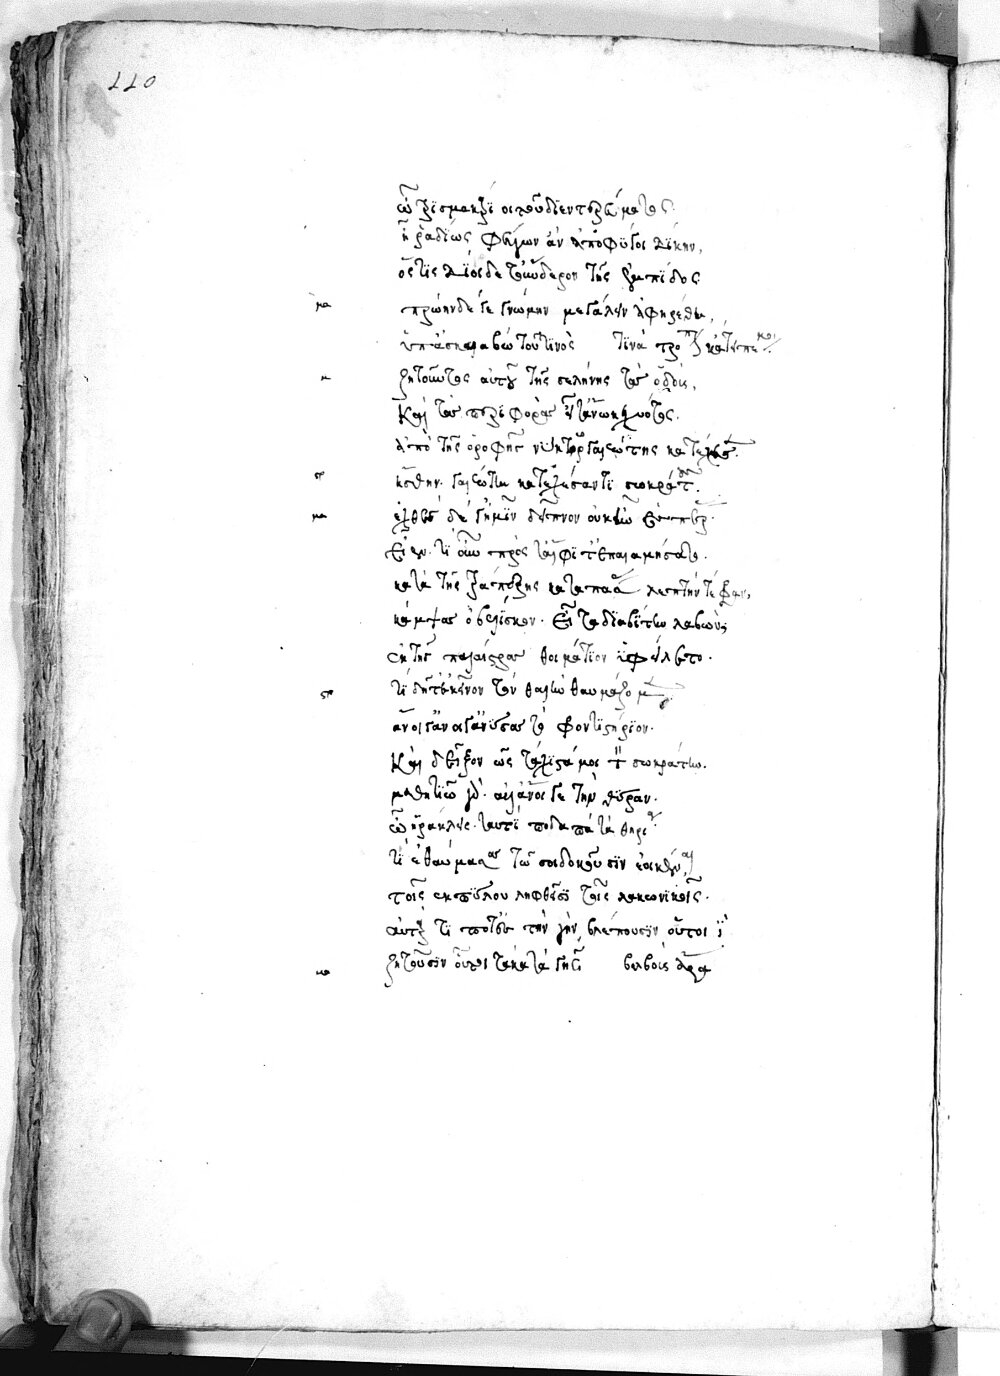 110
ὦ τρισμακάριος τοῦ διεντερεύματος.
ἦ ῥαδίως φεύγων ἂν ἀποφύγοι δίκην,
ὅστις δίοιδε τοὔντερον τῆς ἐμπίδος
μα πρώην δέ γε γνώμην μεγάλην ἀφηρέθη,
ὑπ' ἀσκαλαβώτου τινὸς τίνα τρόπον κάτειπέ μοι
μα ζητοῦντος αὐτοῦ τῆς σελήνης τὰς ὁδοὺς,
καὶ τὰς περιφορὰς εἶτ' ἄνω κεχηνότος.
ἀπὸ τῆς ὀροφῆς νύκτωρ γαλεώτης κατέχεσεν.
στ ἥσθην. γαλεώτη καταχέσαντι σωκράτους.
μα ἐχθὲς δέ γ' ἡμῖν δεῖπνον οὐκ ἦν ἑσπέρας.
εἶεν. τί οὖν πρὸς τἄλφιτ' ἐπαλαμήσατο.
κατὰ τῆς τραπέζης καταπάσας λεπτὴν τέφραν,
κάμψας ὀβελίσκον. εἶτα διαβήτην λαβὼν,
ἐκ τῆς παλαίστρας θοιμάτιον ὑφείλετο.
στ τί δῆτ' ἐκεῖνον τὸν θαλῆν θαυμάζομεν
ἄνοιγ' ἄνοιγ' ἀνύσας τὸ φροντιστήριον.
καὶ δεῖξον ὡς τάχιστά μοι τὸν σωκράτην.
μαθητιῶ γάρ. ἀλλ' ἄνοιγε τὴν θύραν.
ὦ ἡράκλεις. ταυτὶ ποδαπὰ τὰ θηρία
τί ἐθαύμασας τῶ σοι δοκοῦσιν ἐοικέναι
τοῖς ἐκ πύλου ληφθεῖσι τοῖς λακωνικοῖς.
ἀτὰρ τί ποτ' ἐς τὴν γῆν βλέπουσιν οὗτοιί
μα ζητοῦσιν οὗτοι τὰ κατὰ γῆς βολβοὺς ἄρα